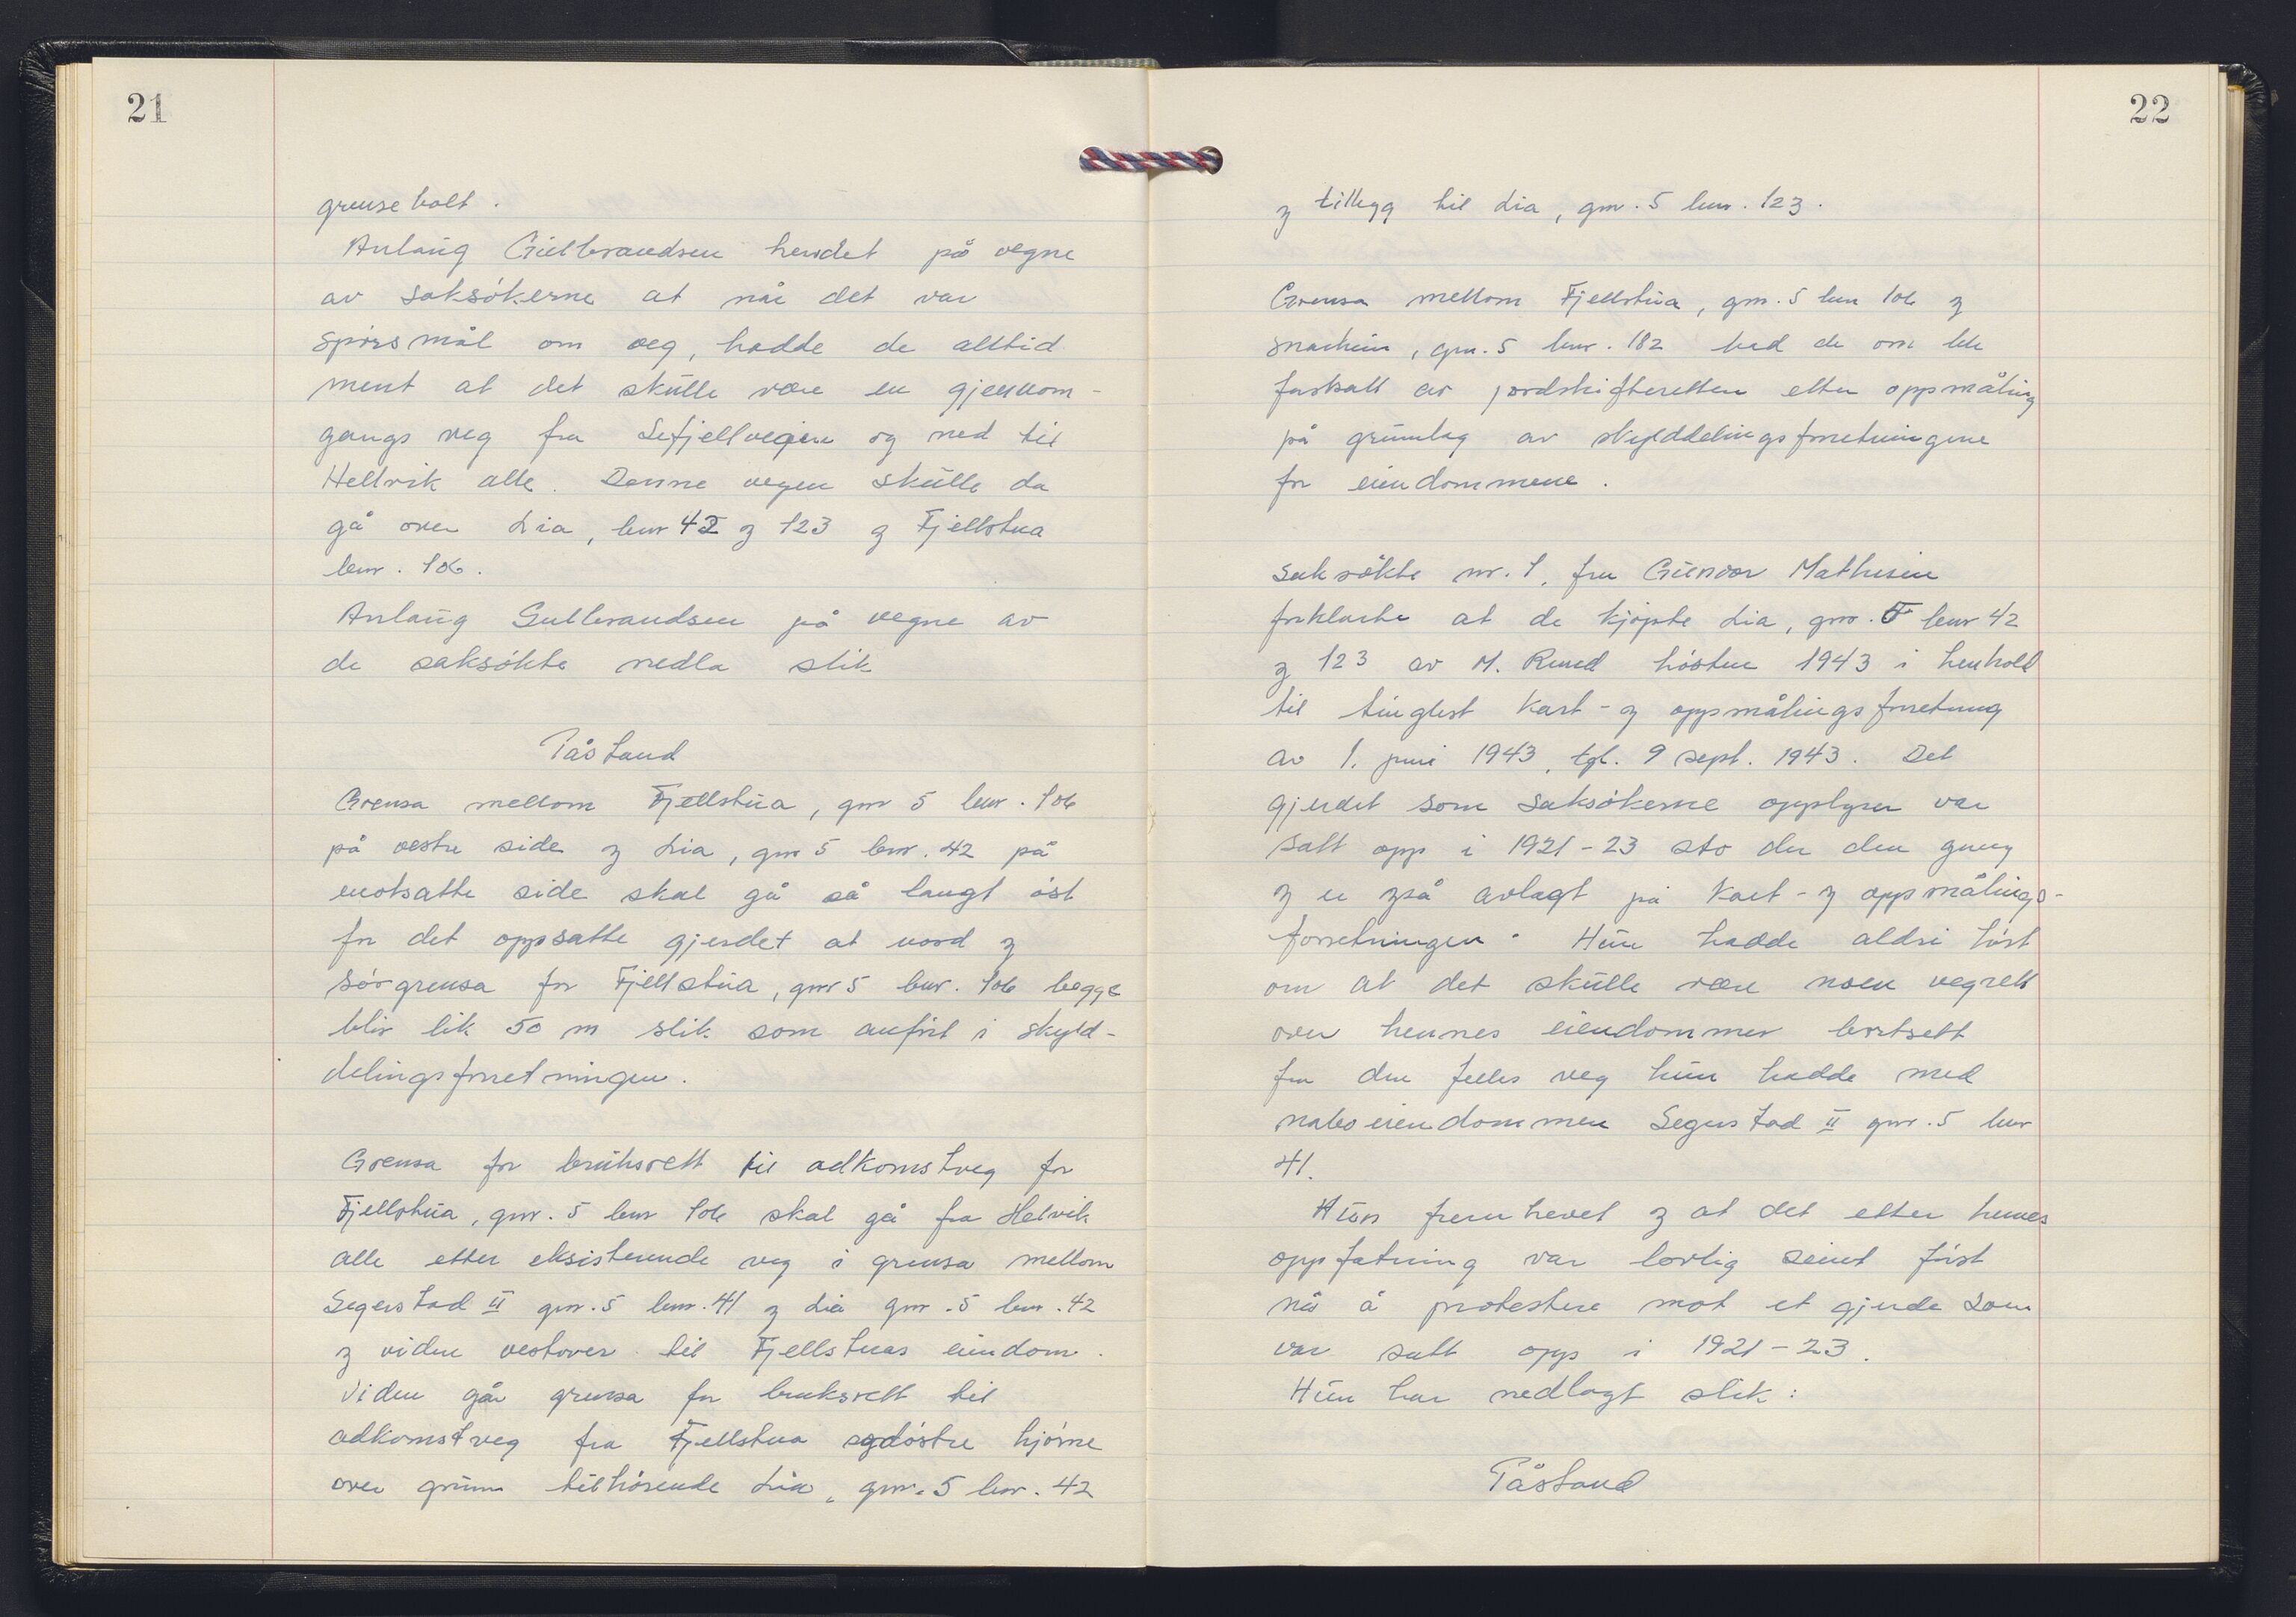 21
grensebolt.
Anlaug Gulbrandsen hevdet på vegne
av saksøkerne at når det var
spørsmål om veg, hadde de alltid
ment at det skulle være en gjennom-
gangs veg fra Lefjellvegen og ned til
Hellvik alle. Denne vegen skulle da
gå over Lia, bnr 42 og 123 og Fjellstua
bnr. 106.
Anlaug Gulbrandsen på vegne av
de saksøkte nedla slik
Påstand
Grensa mellom Fjellstua, gnr 5 bnr. 106
på vestre side og Lia, gnr 5 bnr. 42 på
motsatte side skal gå så langt øst
for det oppsatte gjerdet at nord og
sørgrensa for Fjellstua, gnr 5 bnr. 106 begge
blir lik 50 m slik som anført i skyld-
delingsforretningen.
Grensa for bruksrett til adkomstveg for
Fjellstua, gnr. 5 bnr 106 skal gå fra Helvik
alle etter eksisterende veg i grensa mellom
Segerstad II gnr. 5 bnr. 41 og Lia gnr. 5 bnr. 42
og videre vestover til Fjellstuas eiendom.
Videre går grensa for bruksrett til
adkomstveg fra Fjellstua sydøstre hjørne
over grunn tilhørende Lia, gnr. 5 bnr. 42
22
og tillegg til Lia, gnr. 5 bnr. 123.
Grensa mellom Fjellstua, gnr. 5 bnr 106 og
Snarheim, gnr. 5 bnr. 182 bad de om ble
fastsatt av jordskifteretten etter oppmåling
på grunnlag av skylddelingsforretningene
for eiendommene.
Saksøkte nr. 1, fru Gunvor Mathisen
forklarte at de kjøpte Lia, gnr. 5 bnr 42
og 123 av M. Ruud høsten 1943 i henhold
til tinglest kart- og oppmålingsforretning
av 1. juni 1943, tgl. 9 sept. 1943. Det
gjerdet som saksøkerne opplyser var
satt opp i 1921-23 sto der den gang
og er også avlagt på kart- og oppmålings-
forretningen. Hun hadde aldri hørt
om at det skulle være noen vegrett
over hennes eiendommer bortsett
fra den felles veg hun hadde med
naboeiendommen Segerstad II gnr. 5 bnr
41.
Hun fremhevet og at det etter hennes
oppfatning var lovlig seint først
nå å protestere mot et gjerde som
var satt opp i 1921-23.
Hun har nedlagt slik:
Påstand